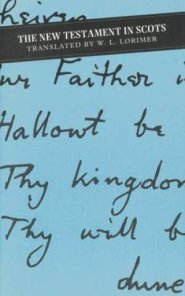 heiven
THE NEW TESTAMENT IN SCOTS
TRANSLATED BY W. L. LORIMER
our Faither i
Hallowt be
Thy kingdom
Thy will b
dune